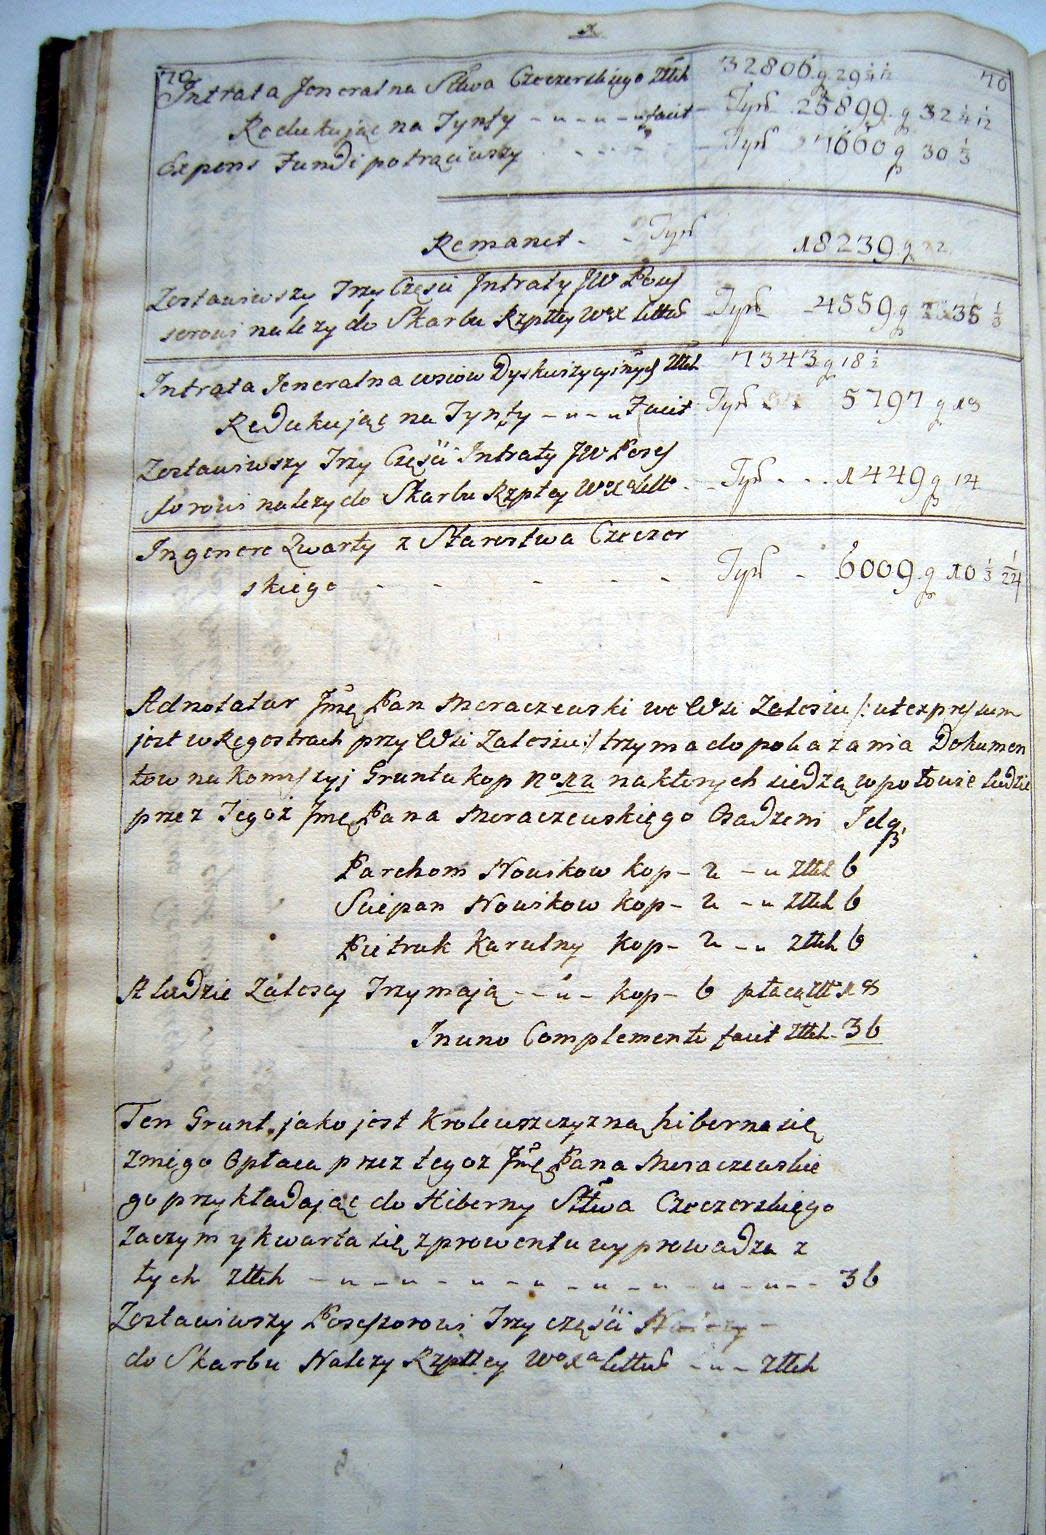 70 70
Intrata Jeneralna Sttwa Czeczerskiego Złłch 32806 g 29
Redukując na Tynfy facit Tynf 25899 g 32 ¼ 1/12
Expens Fundi potrąciwszy Tynf 7660 g 30 ⅓
Remanet Tynf 18239 g
Zostawiwszy Trzy Częsci Intraty JW Poss
sorowi nalezy do Skarbu Rzpltey Wo X Littо Tynf 4559 g 35 ⅓
Intrata Jeneralna wsiow Dyskwizycyinych Złłch 7343 g 18 ½
Redukując na Tynfy facit Tynf 5797 g 18
Zostawiwszy Trzy Częsci Intraty JW Poss
sorowi nalezy do Skarbu Rzpltey Wo Xa Litto Tynf 1449 g 14
Ingenere Qwarty z Starostwa Czeczer
skiego Tynf 6009 g 10 ⅓ 1/24
Adnotatur Jmę Pan Moraczewski we Wsi Zalesiu /: ut expressum
jest w Regestrach przy Wsi Zalesiu :/ trzyma do pokazania Dokumen
tow na Komissyi Gruntu kop No 12 na ktorych siedzą w połowie ludzie
przez Tegoz Jmę Pana Moraczewskiego Osadzeni Telq.
Parchom Nowikow kop - 2 - Złłch 6
Sciepan Nowikow kop - 2 - Złłch 6
Pietruk Karulny kop - 2 - Złłch 6
A ludzie Zalescy Trzymają kop - 6 płacą złł 18
In uno Complementi facit Złłch - 36
Ten Grunt jako jest Krolewszczyzną hiberna się
z niego Opłaca przez tegoz Jmę Pana Moraczewskie
go przykładając do Hiberny Sttwa Czeczerskiego
Zaczym y kwarta się z prowentu wyprowadza z
tych Złłch 36
Zostawiwszy Possessorowi Trzy części
do Skarbu Nalezy Rzpltey Wo Xa Litto Złłch